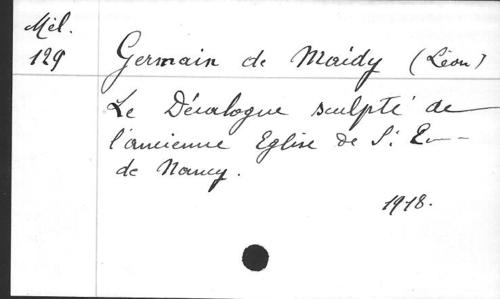 Mél.
129
Germain de Maidy (Léon)
Le Décalogue sculpté de
l'ancienne Eglise de St E
de Nancy.
1918.